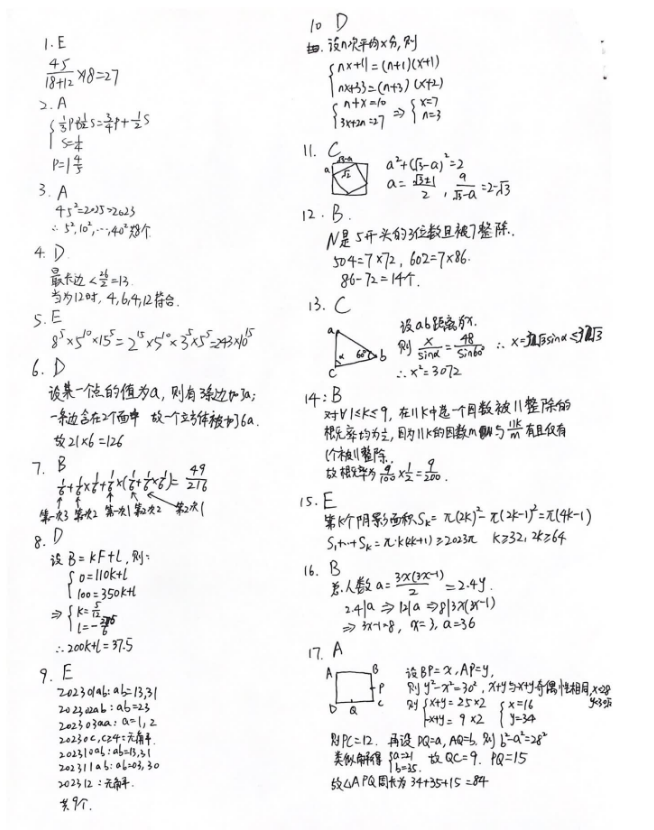 1. E
45/(18+12) ×18=27
2. A
{ 1/3P+1/2S=3/4P+1/2S
S=
P=1 4/5
3. A
45²=2025>2023
∴ 5²,10²,⋯,40²
4. D
最长边<26/2=13.
当为12时, 4,6,4,12符合.
5. E
8⁵×5¹⁰×15⁵=2¹⁵×5¹⁰×3⁵×5⁵=243×10¹⁵
6. D
设某一个点的值为a, 则有3条边加3a;
一条边含在2个面中 故一个立方体被加6a.
故21×6=126
7. B
1/6+1/6×1/6+1/6×(1/6+1/6×1/6)=49/216
第一次3 第一次2 第一次1 第二次2 第二次1
8. D
设B=kF+l, 则:
{ 0=110k+l
100=350k+l
⇒ { k=5/12
l=-
∴200k+l=37.5
9. E
202301ab: ab=13,31
202302ab: ab=23
202303aa: a=1,2
20230c, c≥4: 无解.
202310ab: ab=13,31
202311ab: ab=03,30
202312: 无解.
共9个.
10 D
设n次平均x分, 则
{ nx+11=(n+1)(x+1)
nx+33=(n+3)(x+2)
{ n+x=10
3x+2n=27 ⇒ { x=7
n=3
11. C
a √3-a √2
a²+(√3-a)²=2
a=(√3±1)/2, a/(√3-a)=2-√3
12. B.
N是5开头的3位数且被7整除.
504=7×72, 602=7×86.
86-72=14个.
13. C
a b c α 60°
设ab距离为x.
则 x/sinα=48/sin60° ∴ x=32√3sinα≤32√3
∴x²=3072
14: B
对∀1≤k≤9, 在11k中选一个因数被11整除的
概率均为1/2, 因为11k的因数m与11k/m有且仅有
1个被11整除.
故概率为9/100×1/2=9/200.
15. E
第k个阴影面积Sₖ=π(2k)²-π(2k-1)²=π(4k-1)
S₁+⋯+Sₖ=π·k(2k+1)≥2023π k≥32, 2k≥64
16. B
总人数a=3x(3x-1)/2=2.4y.
2.4|a ⇒12|a ⇒8|3x(3x-1)
⇒3x-1=8, x=3, a=36
17. A
A B P C Q D
设BP=x, AP=y,
则y²-x²=30², x+y与x-y奇偶性相同,
则{ x+y=25×2
-x+y=9×2 { x=16
y=34
则PC=12. 再设DQ=a, AQ=b. 则b²-a²=28²
类似解得{ a=21
b=35. 故QC=9. PQ=15
故△APQ周长为34+35+15=84